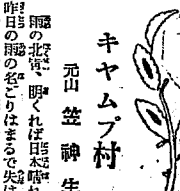 キヤムプ村
元山 笠神生
雨の北衛、明くれば日本晴れ
昨日の雨の名ごりはまるで失は